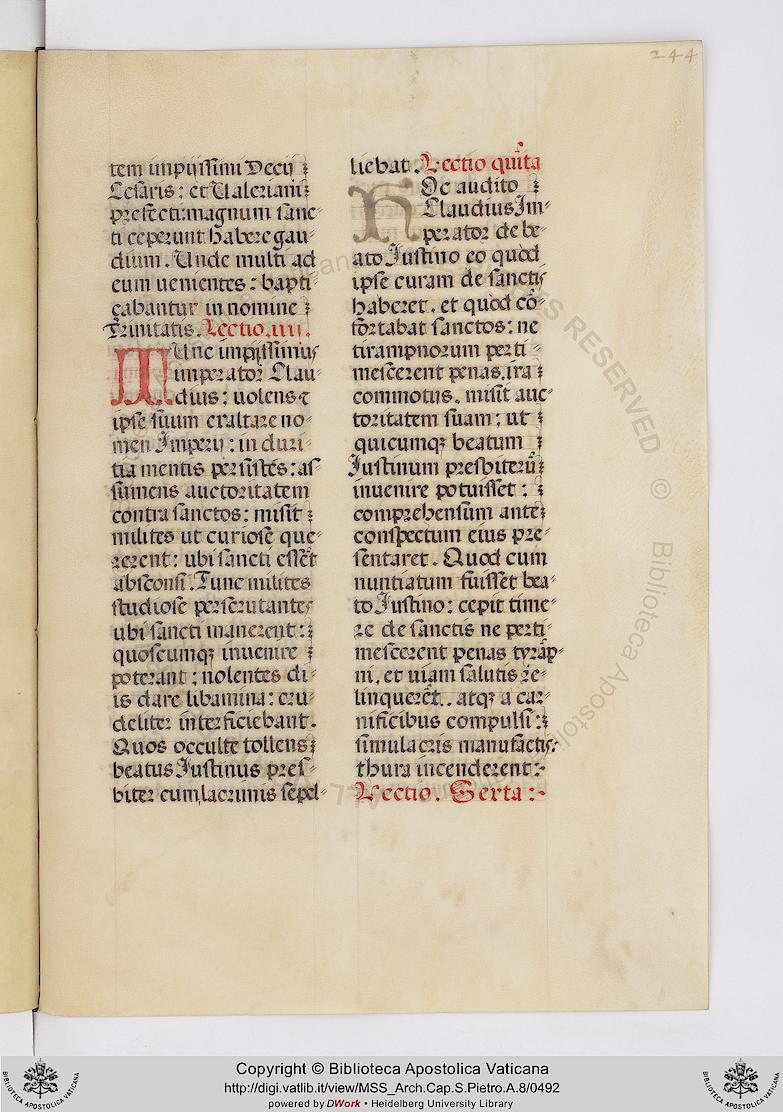 244
tem impijssimi Decij
Cesaris: et Ualeriani
prefecti: magnum sanc-
ti ceperunt habere gau-
dium. Unde multi ad
eum uenientes: bapti-
çabantur in nomine
Trinitatis. Lectio .iiij.
Tunc impijssimus
imperator Clau-
dius: uolens
ipse suum exaltare no-
men Imperij: in duri-
tia mentis persistēs: as-
sumens auctoritatem
contra sanctos: misit
milites ut curiose que-
rerent: ubi sancti essēt
absconsi. Tunc milites
studiose perscrutantes
ubi sancti manerent:
quoscumqȝ inuenire
poterant: nolentes di-
is dare libamina: cru-
deliter interficiebant.
Quos occulte tollens
beatus Iustinus pres-
biter cum lacrimis sepel-
liebat. Lectio quīta
Hoc audito
Claudius Im-
perator de be-
ato Iustino eo quod
ipse curam de sanctis
haberet. et quod cō-
fortabat sanctos: ne
tirampnorum perti-
mescerent penas. ira
commotus. misit auc-
toritatem suam: ut
quicumqȝ beatum
Iustinum presbiterū
inuenire potuisset:
comprehensum ante
conspectum eius pre-
sentaret. Quod cum
nuntiatum fuisset bea-
to Iustino: cepit time-
re de sanctis ne perti-
mescerent penas tyrāp-
ni. et uiam salutis re-
linquerēt.. atqȝ a car-
nificibus compulsi:
simulacris manufactis:
thura incenderent:-
Lectio. Sexta:-
RESERVED © Biblioteca Apostolica
Copyright © Biblioteca Apostolica Vaticana
http://digi.vatlib.it/view/MSS_Arch.Cap.S.Pietro.A.8/0492
powered by DWork • Heidelberg University Library
BIBLIOTECA APOSTOLICA VATICANA
BIBLIOTECA APOSTOLICA VATICANA